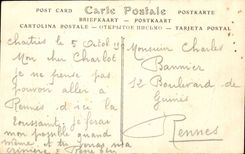 POST CARD Carte Postale POSTKARTE
BRIEFKAART POSTKORT
CARTOLINA POSTALE ОТКРЫТОЕ ПИСЬМО TARJETA POSTAL
Chartres le 5
Mon cher Charlot
Je ne pense pas
pouvoir aller à
Rennes d'ici la
toussaint, je ferai
mon possible quand
même et tu
Monsieur Charles
Bannier
12 Boulevard de
Guines
Rennes